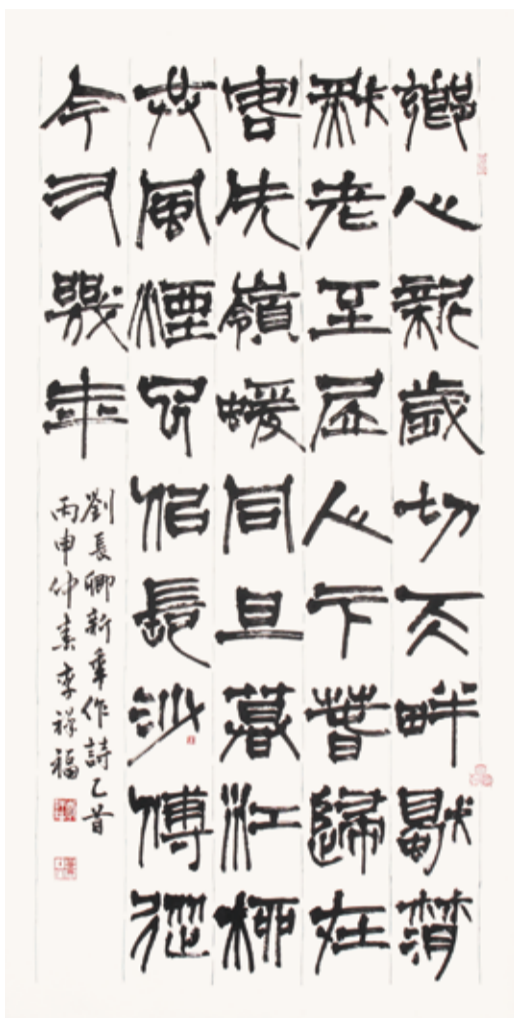 鄉心新歲切天畔獨潸
然老至居人下春歸在
客先嶺蝯同旦暮江柳
共風煙已佀長沙傅從
今又幾年
劉長卿新年作詩乙首
丙申仲春李祥福